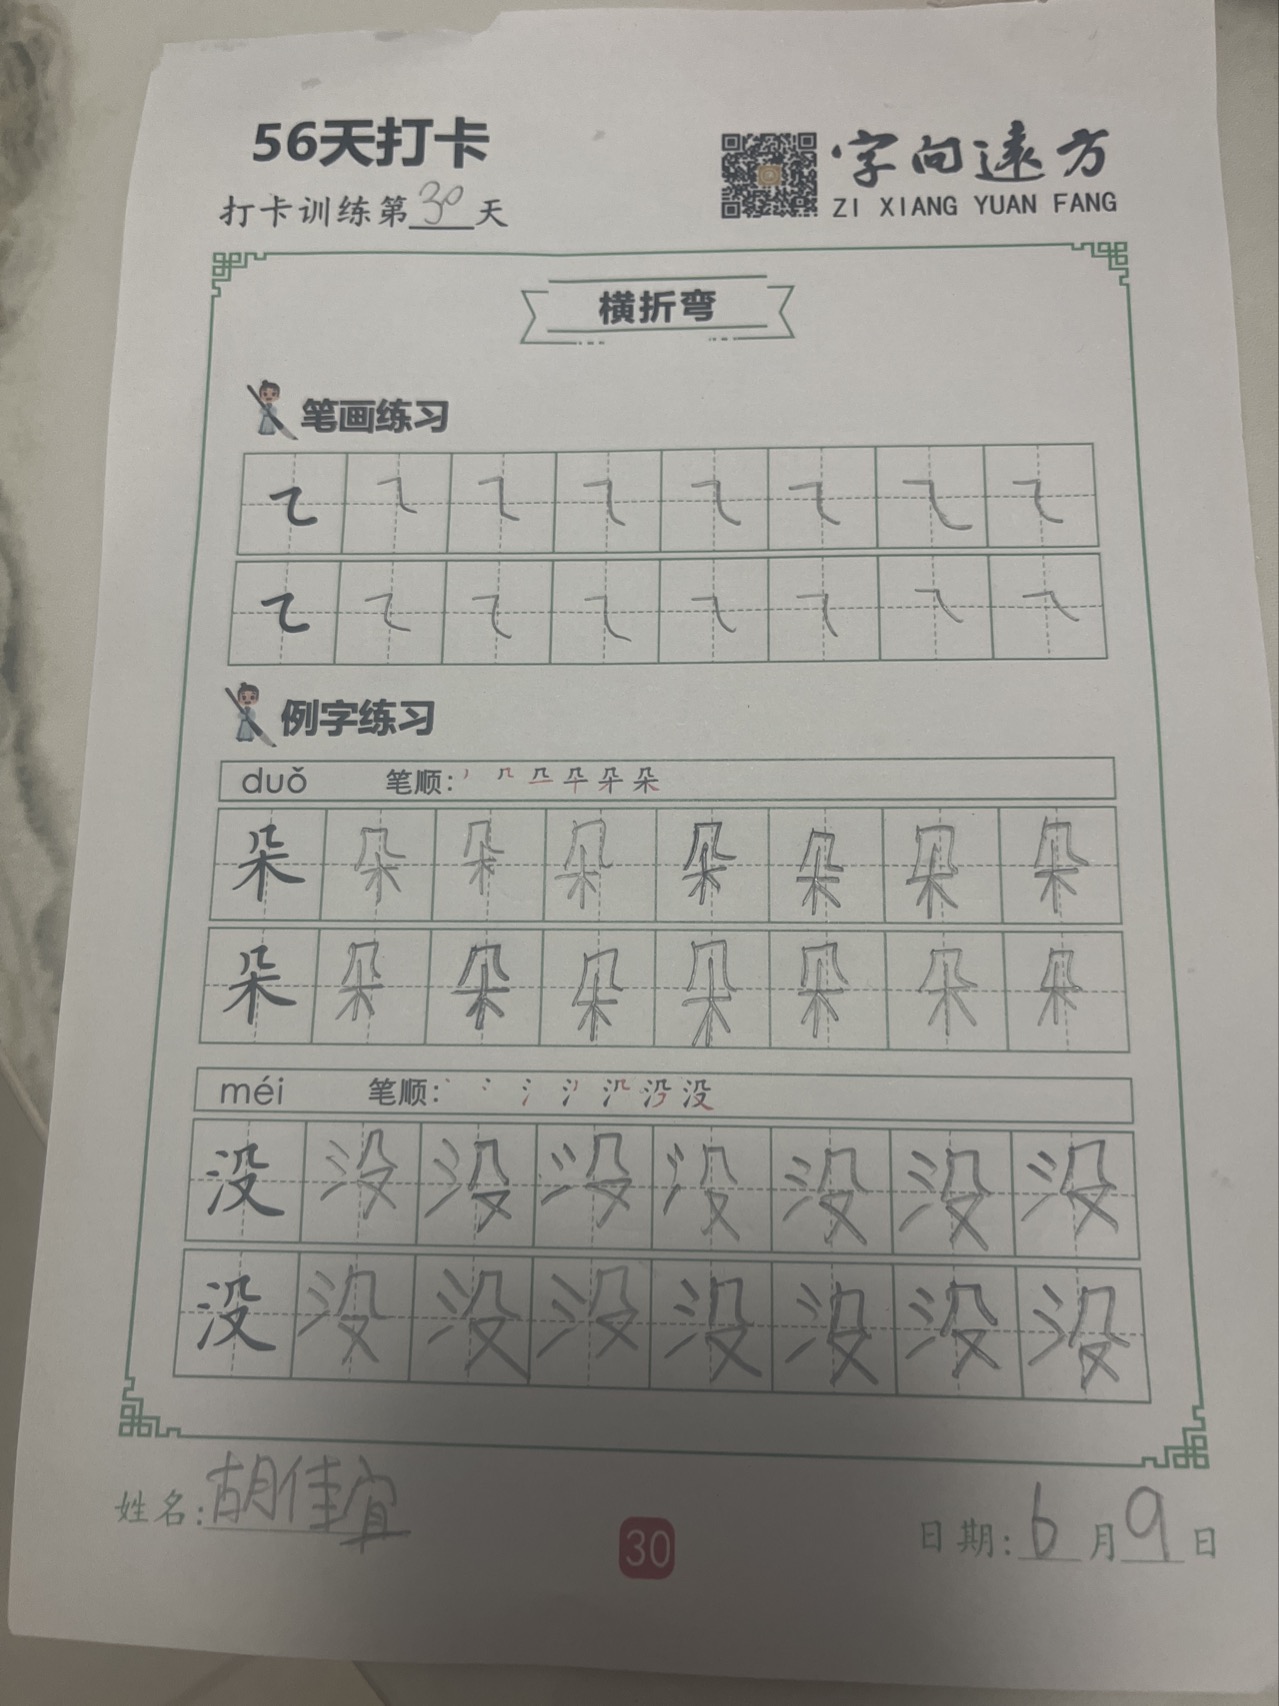 56天打卡
打卡训练第30天
字向远方
ZI XIANG YUAN FANG
横折弯
笔画练习
㇍ ㇍ ㇍ ㇍ ㇍ ㇍ ㇍ ㇍
㇍ ㇍ ㇍ ㇍ ㇍ ㇍ ㇍ ㇍
例字练习
duǒ 笔顺:
朵 朵 朵 朵 朵 朵 朵 朵
朵 朵 朵 朵 朵 朵 朵 朵
méi 笔顺:
没 没 没 没 没 没 没 没
没 没 没 没 没 没 没 没
姓名:胡佳宜
30
日期:6月9日